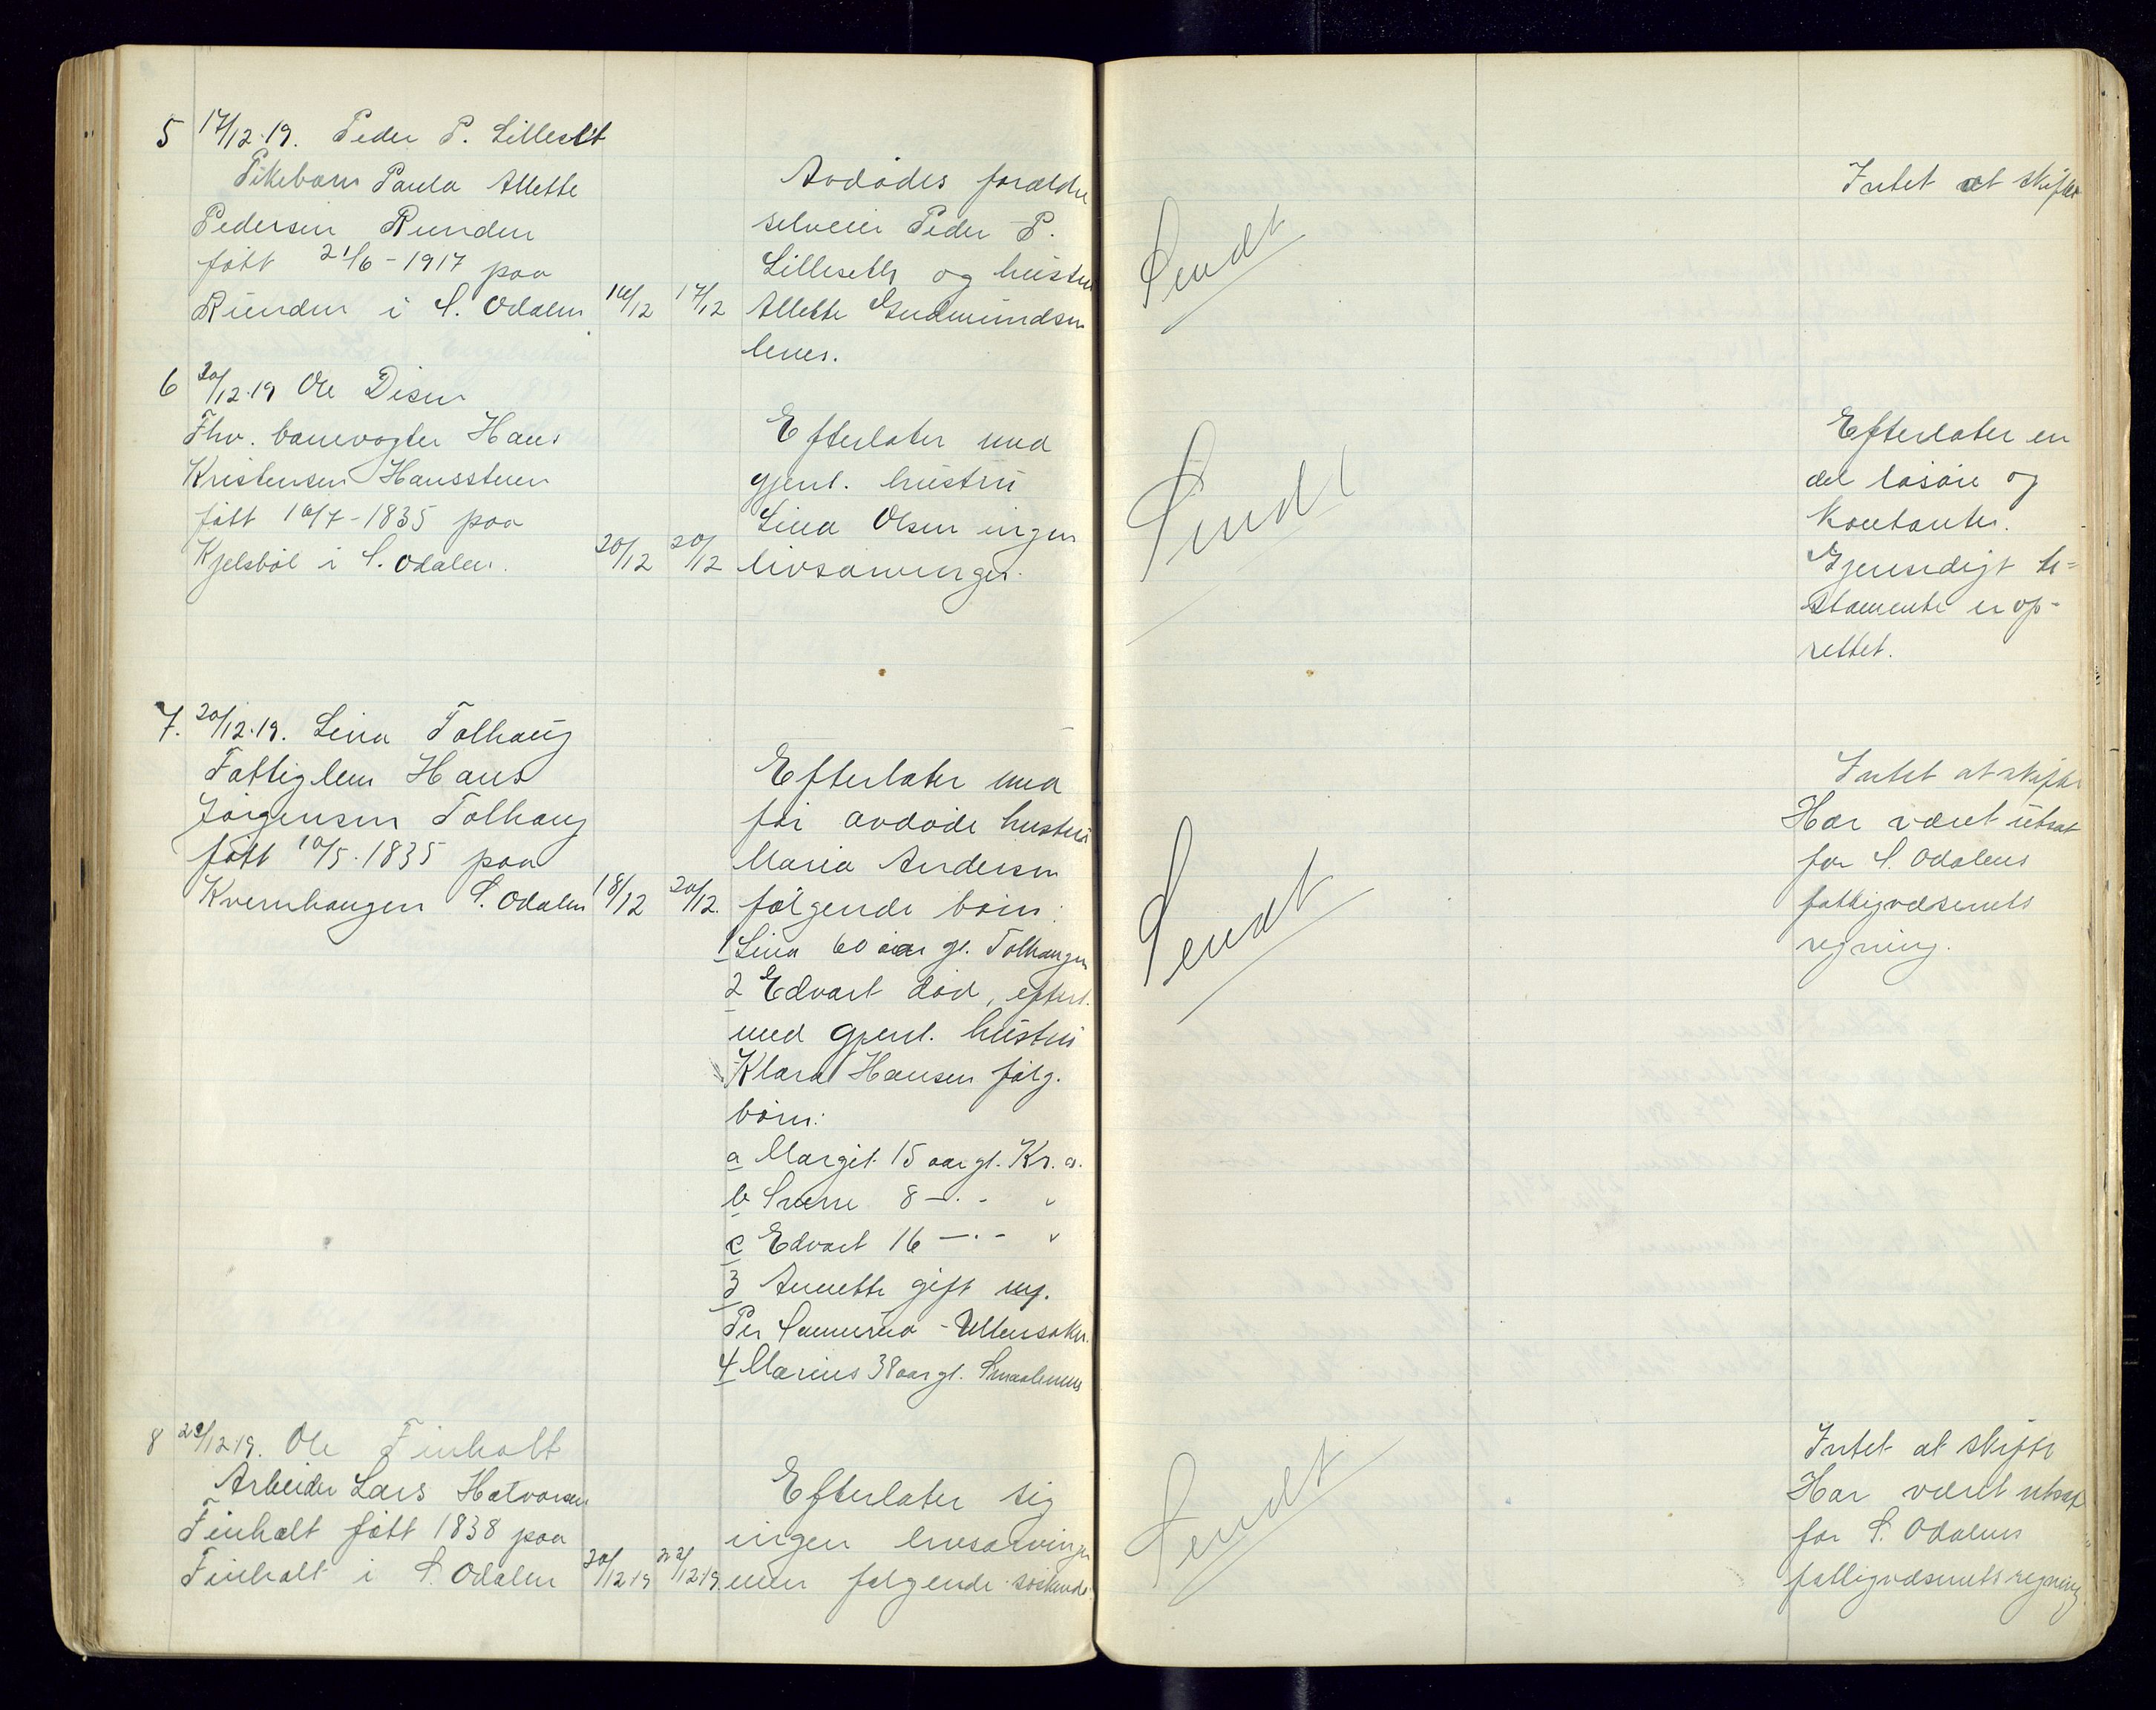 5 17/12·19. Peder P. Lilleseth
Pikebarn Paula Allette
Pedersen Runden
født 21/6-1917 paa
Runden i S. Odalen 16/12 17/12
Avdødes forældre
selveier Peder P.
Lilleseth og hustru
Allette Gudmundsen
lever.
Sendt
Intet at skifte
6 20/12·19 Ole Disen
Fhv. banevogter Hans
Kristensen Haussteen
født 16/7-1835 paa
Kjelsböl i S. Odalen. 20/12 20/12
Efterlater med
gjenl. hustru
Lina Olsen ingen
livsarvinger.
Sendt
Efterlater en
del løsøre og
kontanter.
Gjensidigt te=
stamente er op-
rettet.
7. 20/12·19. Lina Tolhaug
Fattiglem Hans
Jørgensen Tolhaug
født 10/5·1835 paa
Kvernhaugen S. Odalen 18/12 20/12.
Efterlater med
før avdøde hustru
Maria Andersen
følgende børn:
1 Lina 60 aar gl. Tolhaugen
2 Edvart død, efterl.
med gjenl. hustru
Klara Hansen følg.
børn:
a Margit 15 aar gl. Kr.a.
b Sverre 8 —·- "
c Edvart 16 —·- "
3 Annette gift m.
Per - Ullensaker.
4 Marius 38 aar gl. Smaalenene
Sendt
Intet at skifte
Har været utsat
for S. Odalens
fattigvæsenets
regning.
8 22/12·19. Ole Finholt
Arbeider Lars Halvorsen
Finholt født 1838 paa
Finholt i S. Odalen 20/12·19 22/12·19.
Efterlater sig
ingen livsarvinger
men følgende søskende
Sendt
Intet at skifte
Har været utsat
for S. Odalens
fattigvæsenets regning